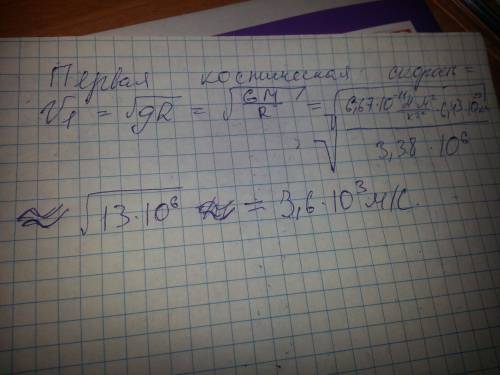 Первая космическая скорость =
V₁ = √gR = √GM/R = √6,67·10⁻¹¹ Н·м²/кг² · 6,43·10²³/3,38·10⁶
≈ √13·10⁶ = 3,6·10³ м/с.